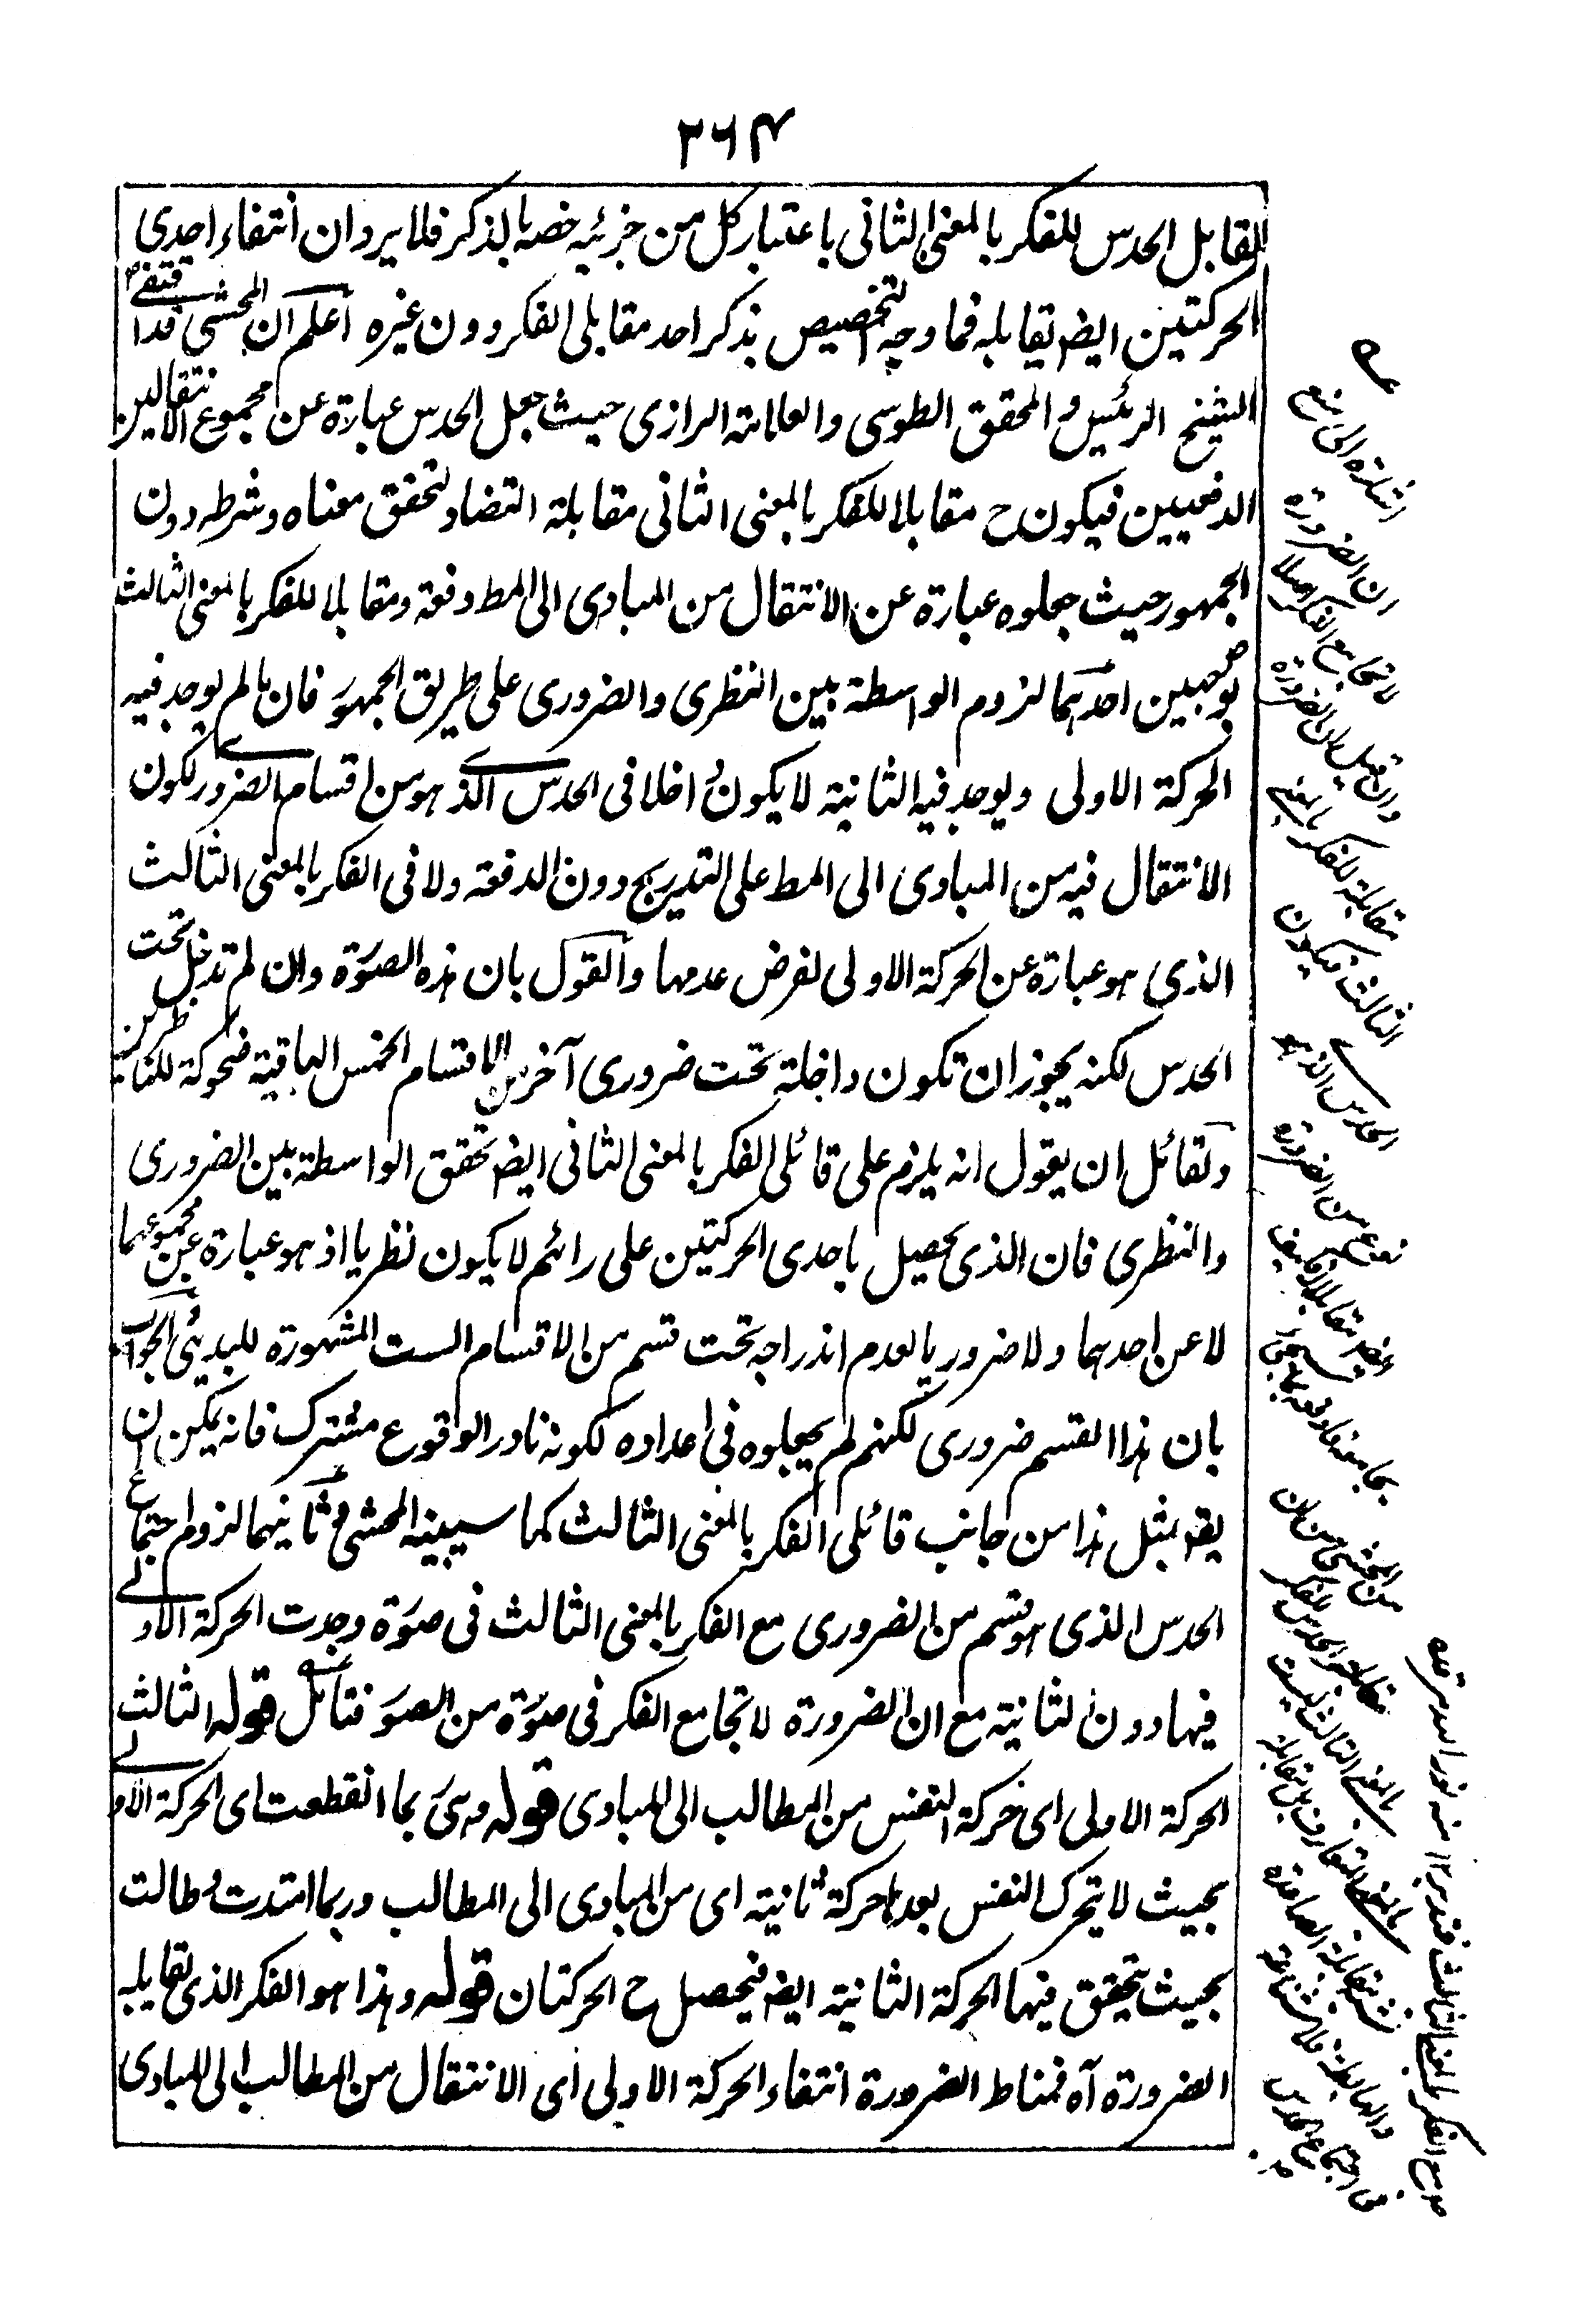 ۲۶۴
لمقابل الحدس للفكر بالمعنى الثانى باعتبار كل من جزئيه خصه بالذكر فلا يرد ان انتفاء احدى
الحركتين ايضا يقابله فما وجه التخصيص بذكر احد مقابلى الفكر دون غيره اعلم ان المحشى قد اقتفى
الشيخ الرئيس والمحقق الطوسى والعلامة الرازى حيث جعل الحدس عبارة عن مجموع الانتقالين
الدفعيين فيكون ح مقابلا للفكر بالمعنى الثانى مقابلة التضاد لتحقق معناه وشرطه دون
الجمهور حيث جعلوه عبارة عن الانتقال من المبادى الى المط دفعة ومقابلا للفكر بالمعنى الثالث
بوجهين احدهما لزوم الواسطة بين النظرى والضرورى على طريق الجمهور فان ما لم يوجد فيه
الحركة الاولى ويوجد فيه الثانية لا يكون داخلا فى الحدس الذى هو من اقسام الضرورى لكون
الانتقال فيه من المبادى الى المط على التدريج دون الدفعة ولا فى الفكر بالمعنى الثالث
الذى هو عبارة عن الحركة الاولى لفرض عدمها والقول بان هذه الصورة وان لم تدخل تحت
الحدس لكنه يجوز ان تكون داخلة تحت ضرورى آخر من الاقسام الخمس الباقية ضحوكة للناظرين
ولقائل ان يقول انه يلزم على قائلى الفكر بالمعنى الثانى ايضا تحقق الواسطة بين الضرورى
والنظرى فان الذى يحصل باحدى الحركتين على رائهم لا يكون نظريا اذ هو عبارة عن مجموعهما
لا عن احدهما ولا ضروريا لعدم اندراجه تحت قسم من الاقسام الست المشهورة للبديهى والجواب
بان هذا القسم ضرورى لكنهم لم يجعلوه فى اعداده لكونه نادر الوقوع مشترك فانه يمكن ان
يقو بمثل هذا من جانب قائلى الفكر بالمعنى الثالث كما سيبينه المحشى و ثانيهما لزوم اجتماع
الحدس الذى هو قسم من الضرورى مع الفكر بالمعنى الثالث فى صورة وجدت الحركة الاولى
فيها دون الثانية مع ان الضرورة لا تجامع الفكر فى صورة من الصور فتأمل قوله الثالث
الحركة الاولى اى حركة النفس من المطالب الى المبادى قوله وهى ربما انقطعت اى الحركة الاولى
بحيث لا يتحرك النفس بعدها حركة ثانية اى من المبادى الى المطالب وربما امتدت وطالت
بحيث يتحقق فيها الحركة الثانية ايضا فيحصل ح الحركتان قوله وهذا هو الفكر الذى تقابله
الضرورة آه فمناط الضرورة انتفاء الحركة الاولى اى الانتقال من المطالب الى المبادى
اشارة الى منع
ان الضرورة
لا تجامع الفكر اصلا
مقابلة للفكر بالمعنى
الثالث فيكون
الحدس الذى هو
نوع من الضرورة